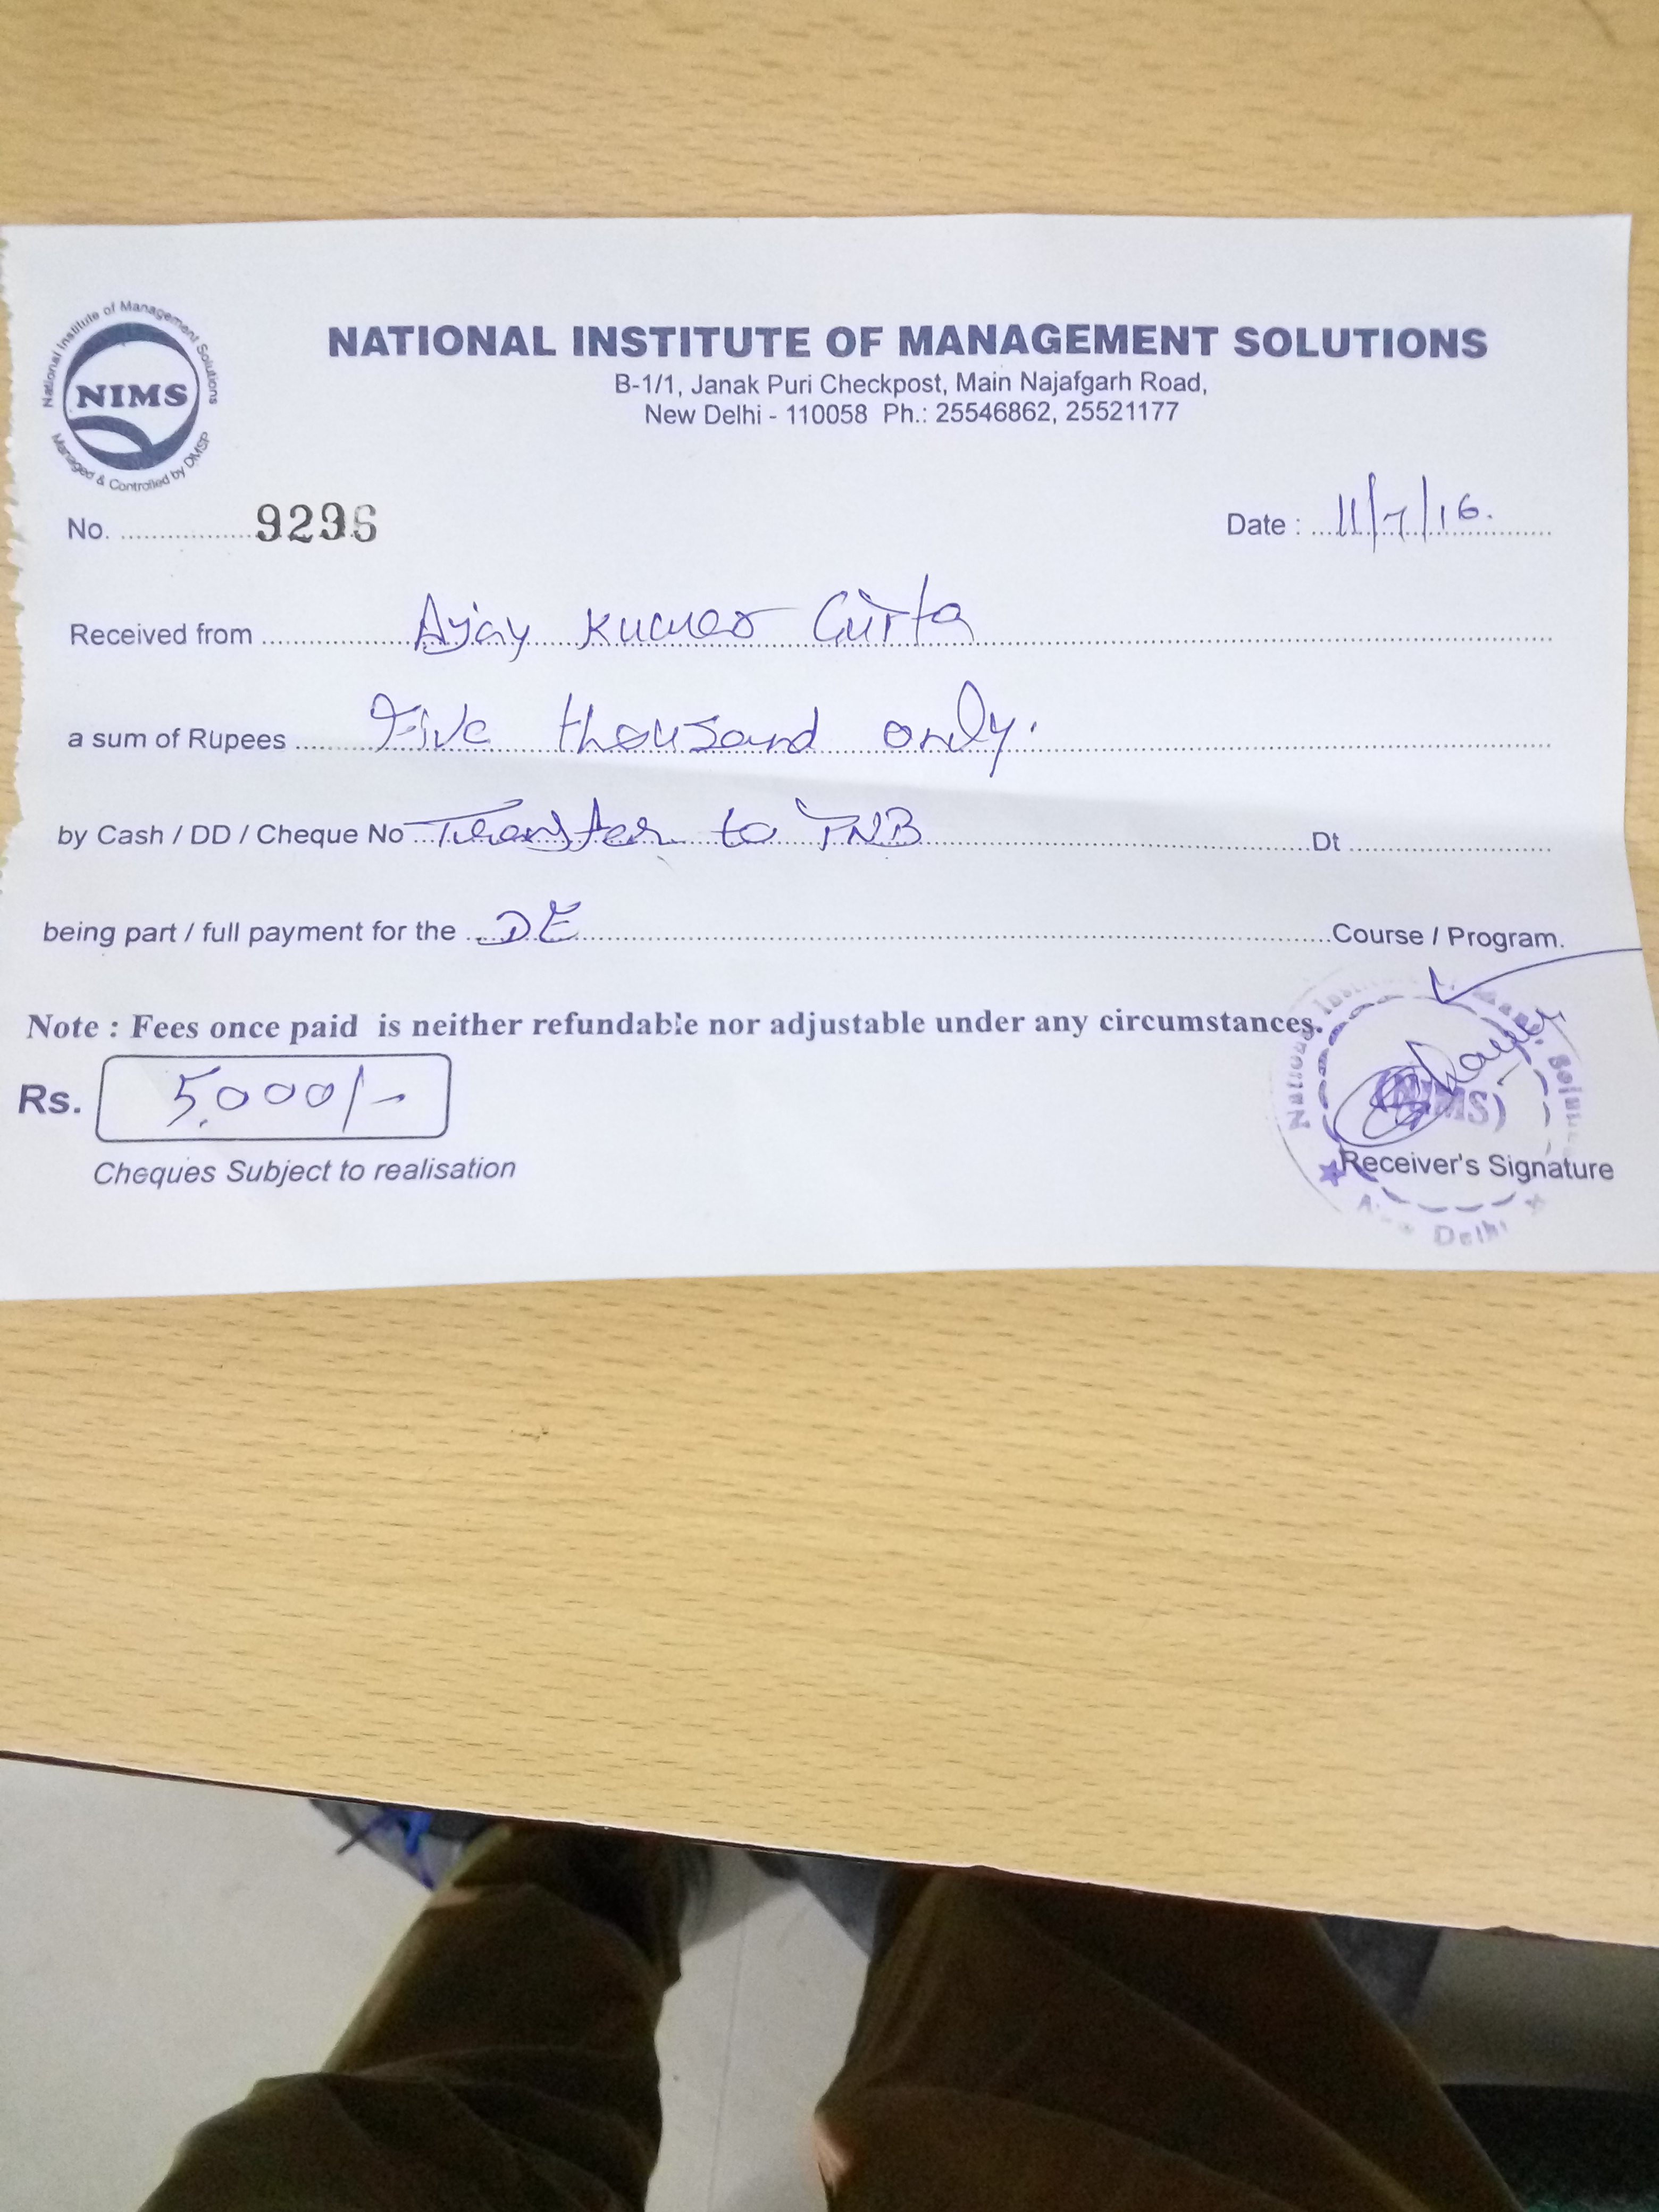 National Institute of Management Solutions
NIMS
Managed & Controlled by DMSP
NATIONAL INSTITUTE OF MANAGEMENT SOLUTIONS
B-1/1, Janak Puri Checkpost, Main Najafgarh Road,
New Delhi - 110058 Ph.: 25546862, 25521177
No. 9296 Date : 11/7/16.
Received from Ajay Kumar Gupta
a sum of Rupees Five thousand only.
by Cash / DD / Cheque No Transfer to PNB Dt
being part / full payment for the DE Course / Program.
Note : Fees once paid is neither refundable nor adjustable under any circumstances.
Rs. 5,000/-
Cheques Subject to realisation
(NIMS)
Receiver's Signature
Delhi